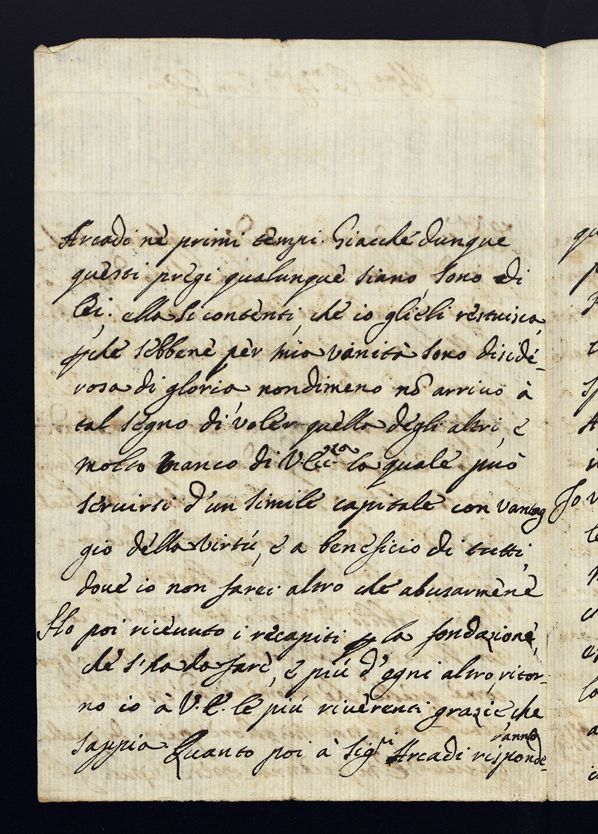 Arcadi nè primi tempi. Giacchè dunque
questi pregi qualunque siano, sono di
lei. ella si contenti, che io glieli restituisca
pche sebbene per mia vanità sono diside-
roso di gloria nondimeno nõ arrivo à
tal segno di voler quella degli altri, e
molto manco di V. la quale può
servirsi d'un simile capitale con vantag
gio della virtú, e a beneficio di tutti,
dove io non farei altro che abusarmene
Ho poi ricevuto i recapiti p la fondazione,
che s'ha da fare, e piú d'ogni altro, ritor-
no io à V.E. le piú riverenti grazie che
sappia. Quanto poi à Sigri Arcadi risponde-
ranno